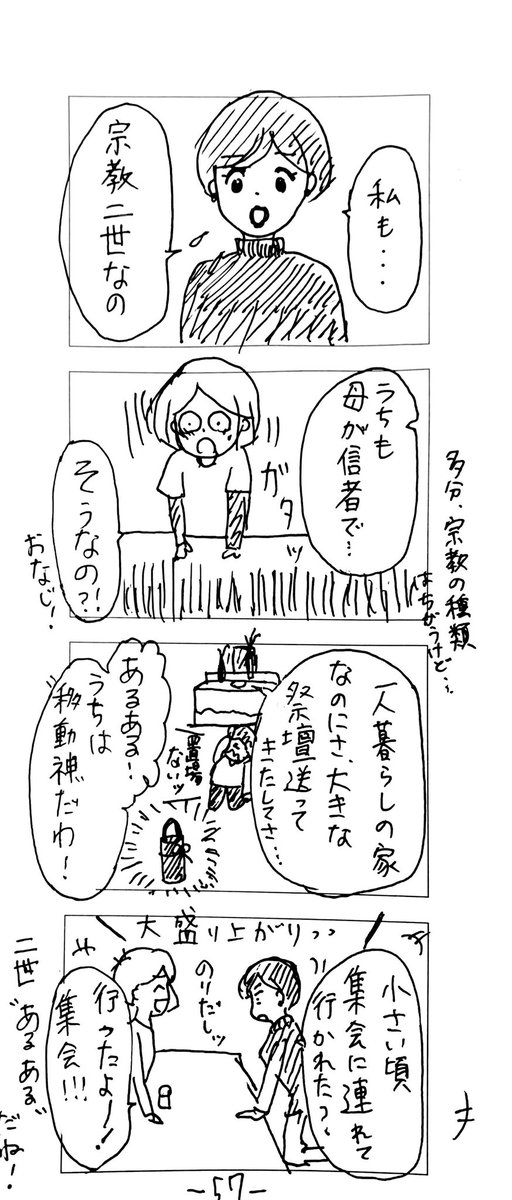 私も・・・
宗教二世なの
うちも
母が信者で…
ガタッ
そうなの?!
おなじ！
多分、宗教の種類
はちがうけど…
一人暮らしの家
なのにさ、大きな
祭壇送って
きたしてさ…
置場
ないッ
あるある！
うちは
"移動神"だわ！
大盛り上がりっっ
小さい頃
集会に連れて
行かれたっ
のりだしッ
行ったよー！
集会!!!
二世
"あるある"
だね！
-57-